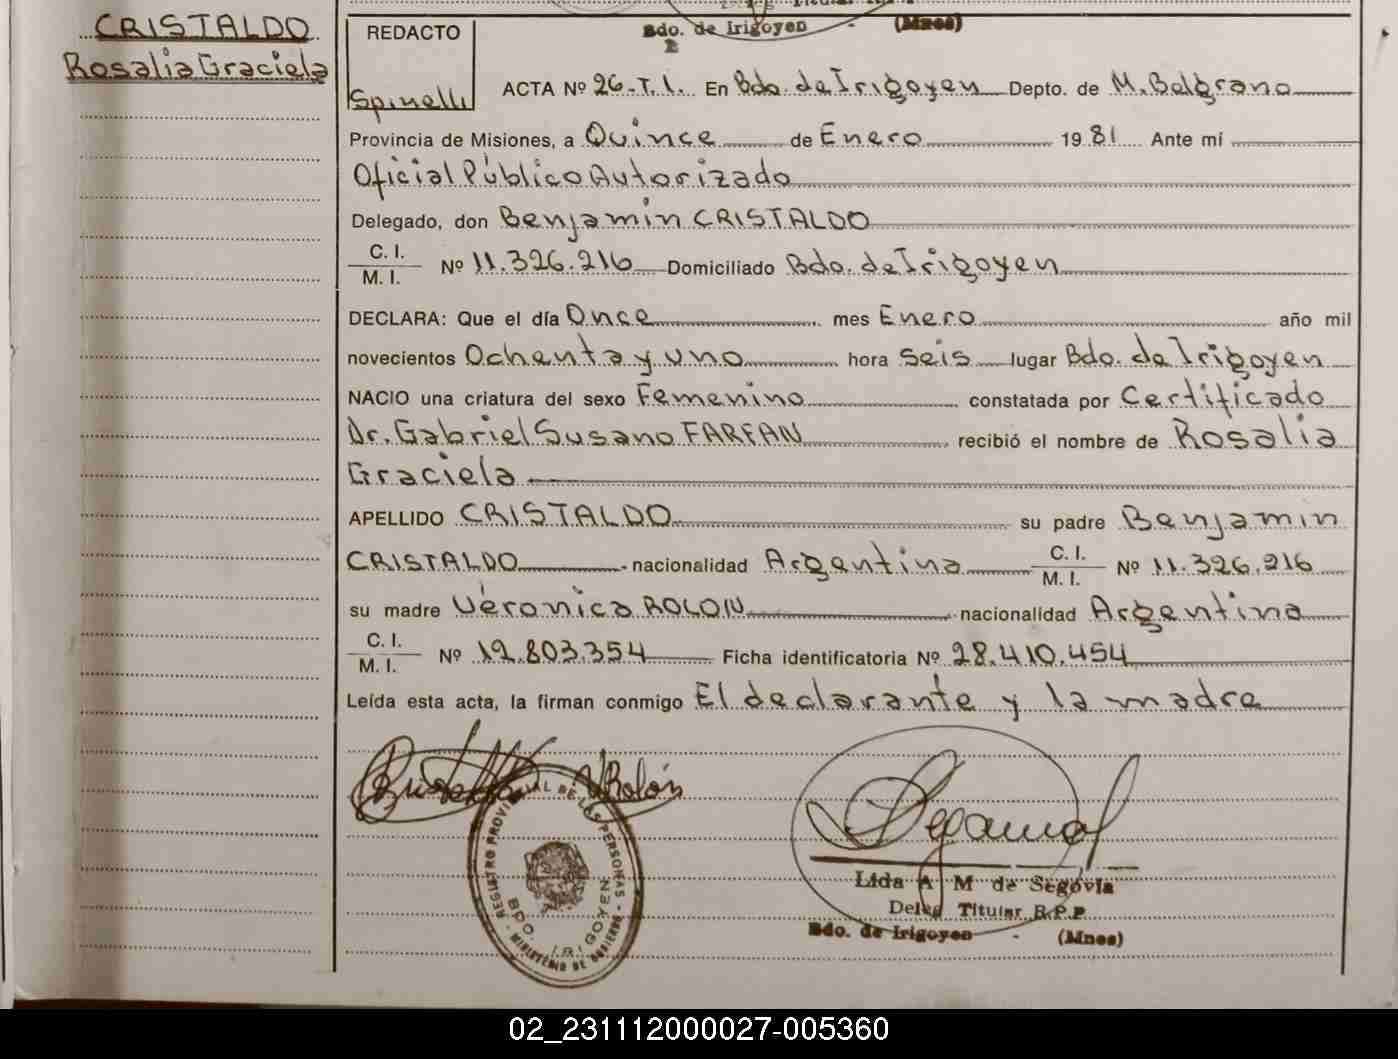 CRISTALDO
Rosalia Graciela
Bdo. de Irigoyen - (Mnes)
REDACTO
Spinelli
ACTA Nº 26-T.I. En Bdo. de Irigoyen Depto. de M. Belgrano
Provincia de Misiones, a Quince de Enero 1981 Ante mí
Oficial Público Autorizado
Delegado, don Benjamin CRISTALDO
C. I.
M. I. Nº 11.326.216 Domiciliado Bdo. de Irigoyen
DECLARA: Que el día Once mes Enero año mil
novecientos Ochenta y uno hora seis lugar Bdo. de Irigoyen
NACIO una criatura del sexo Femenino constatada por Certificado
Dr. Gabriel Susano FARFAN recibió el nombre de Rosalia
Graciela
APELLIDO CRISTALDO su padre Benjamin
CRISTALDO nacionalidad Argentina C. I. M. I. Nº 11.326.216
su madre Veronica ROLON nacionalidad Argentina
C. I.
M. I. Nº 12.803.354 Ficha identificatoria Nº 28.410.454
Leída esta acta, la firman conmigo El declarante y la madre
VRolón
REGISTRO PROVINCIAL DE LAS PERSONAS
BDO. IRIGOYEN
MINISTERIO DE GOBIERNO
Lida A M de Segovia
Deleg Titular R.P.P
Bdo. de Irigoyen - (Mnes)
02_231112000027-005360